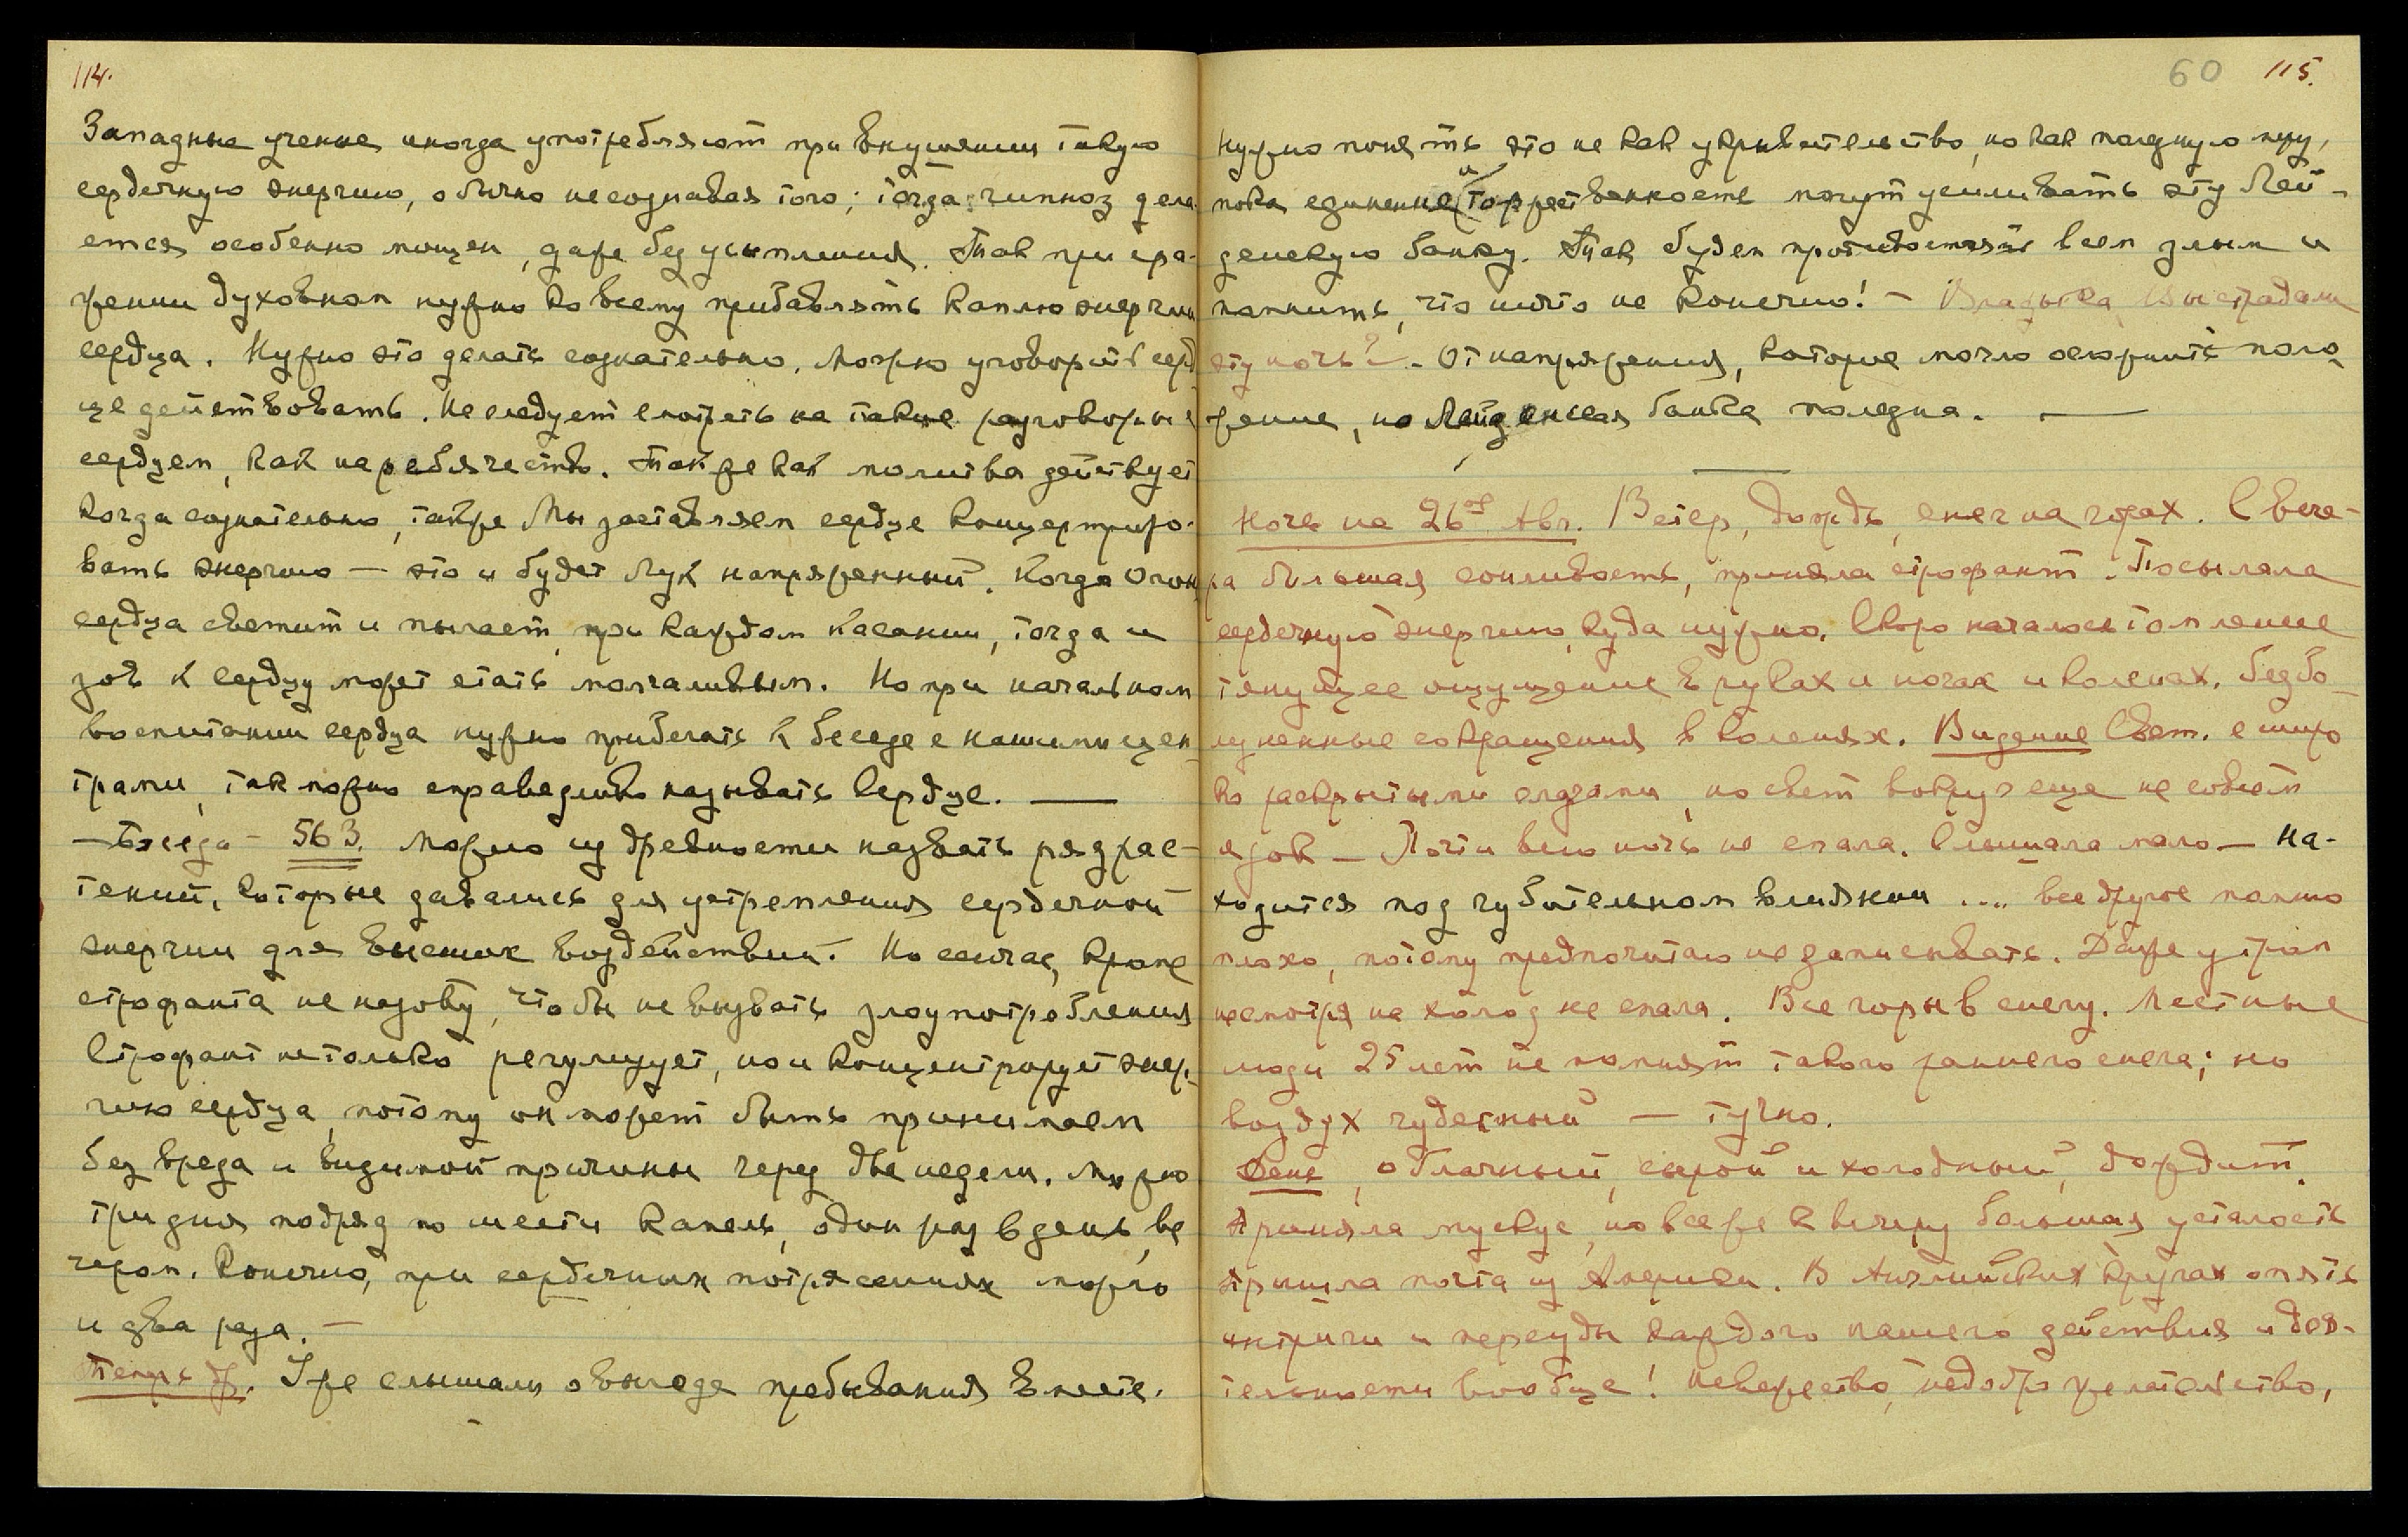 114.
Западные ученые иногда употребляют при внушении такую
сердечную энергию, обычно не сознавая того; тогда гипноз дела-
ется особенно мощен, даже без усыпления. Так при сра-
жении духовном нужно ко всему прибавлять каплю энергии
сердца. Нужно это делать сознательно. Можно уговорить серд
це действовать. Не следует смотреть на такие разговоры с
сердцем, как на ребячество. Так же как молитва действует
когда сознательно, также Мы заставляем сердце концертриро-
вать энергию — это и будет Лук напряженный. Когда Огонь
сердца светит и пылает при каждом касании, тогда и
зов к сердцу может стать молчаливым. Но при начальном
воспитании сердца нужно прибегать к беседе с нашими цен
трами, так можно справедливо называть Сердце. —
— Беседа — 563. Можно из древности назвать ряд рас-
тений, которые давались для устремления сердечной
энергии для высших воздействий. Но сейчас, кроме
строфанта не назову, чтобы не вызвать злоупотребления
Строфант не только регулирует, но и концентрирует энер-
гию сердца, потому он может быть принимаем
без вреда и видимой причины через две недели. Можно
три дня подряд по шести капель, один раз в день, ве
чером. Конечно, при сердечных потрясениях можно
и два раза. —
Теперь др. Уже слышали о выгоде пребывания вместе.
60 115.
Нужно понять это не как укрывательство, но как полезную меру,
пока единение и торжественность могут усиливать эту Лей-
денскую банку. Так будем противостоять всем злым и
помнить, что ничто не конечно! — Владыка, Вы страдали
эту ночь? — От напряжения, которое могло оскорнить поло
жение, но Лейденская банка полезна. —
Ночь на 26ое Авг. Ветер, дождь, снег на горах. С вече-
ра большая сонливость, приняла строфант. Посылала
сердечную энергию, куда нужно. Скоро началось томление
тянущее ощущение в руках и ногах и коленах. Безбо-
лезненные сокращения в коленях. Видение Свет. с широ
ко раскрытыми глазами, но свет вокруг еще не совсем
ядов — Почти всю ночь не спала. Слышала мало — На-
ходится под губительном влиянии .... все другое помню
плохо, потому предпочитаю не записывать. Даже утром
несмотря на холод не спала. Все горы в снегу. Местные
люди 25 лет не помнят такого раннего снега; но
воздух чудесный — тучно.
День, облачный, сырой и холодный, дождит.
Приняла мускус, но все же к вечеру большая усталость
Пришла почта из Америки. В Английских кругах опять
интриги и пересуды каждого нашего действия и дея-
тельности вообще! Невежество, недоброжелательство,